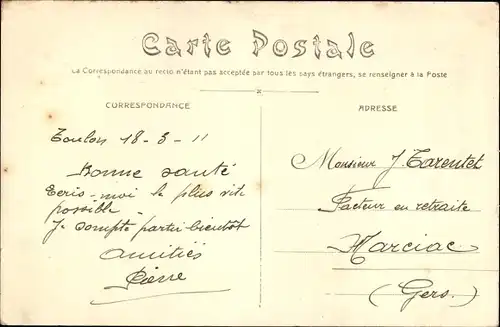 Carte Postale
La Correspondance au recto n'étant pas acceptée par tous les pays étrangers, se renseigner à la Poste
CORRESPONDANCE
Toulon 18-3-11
Bonne santé
Ecris-moi le plus vite
possible
Je compte partir bientôt
Amitiés
Pierre
ADRESSE
Monsieur J. Tarentet
Facteur en retraite
Marciac
(Gers.)